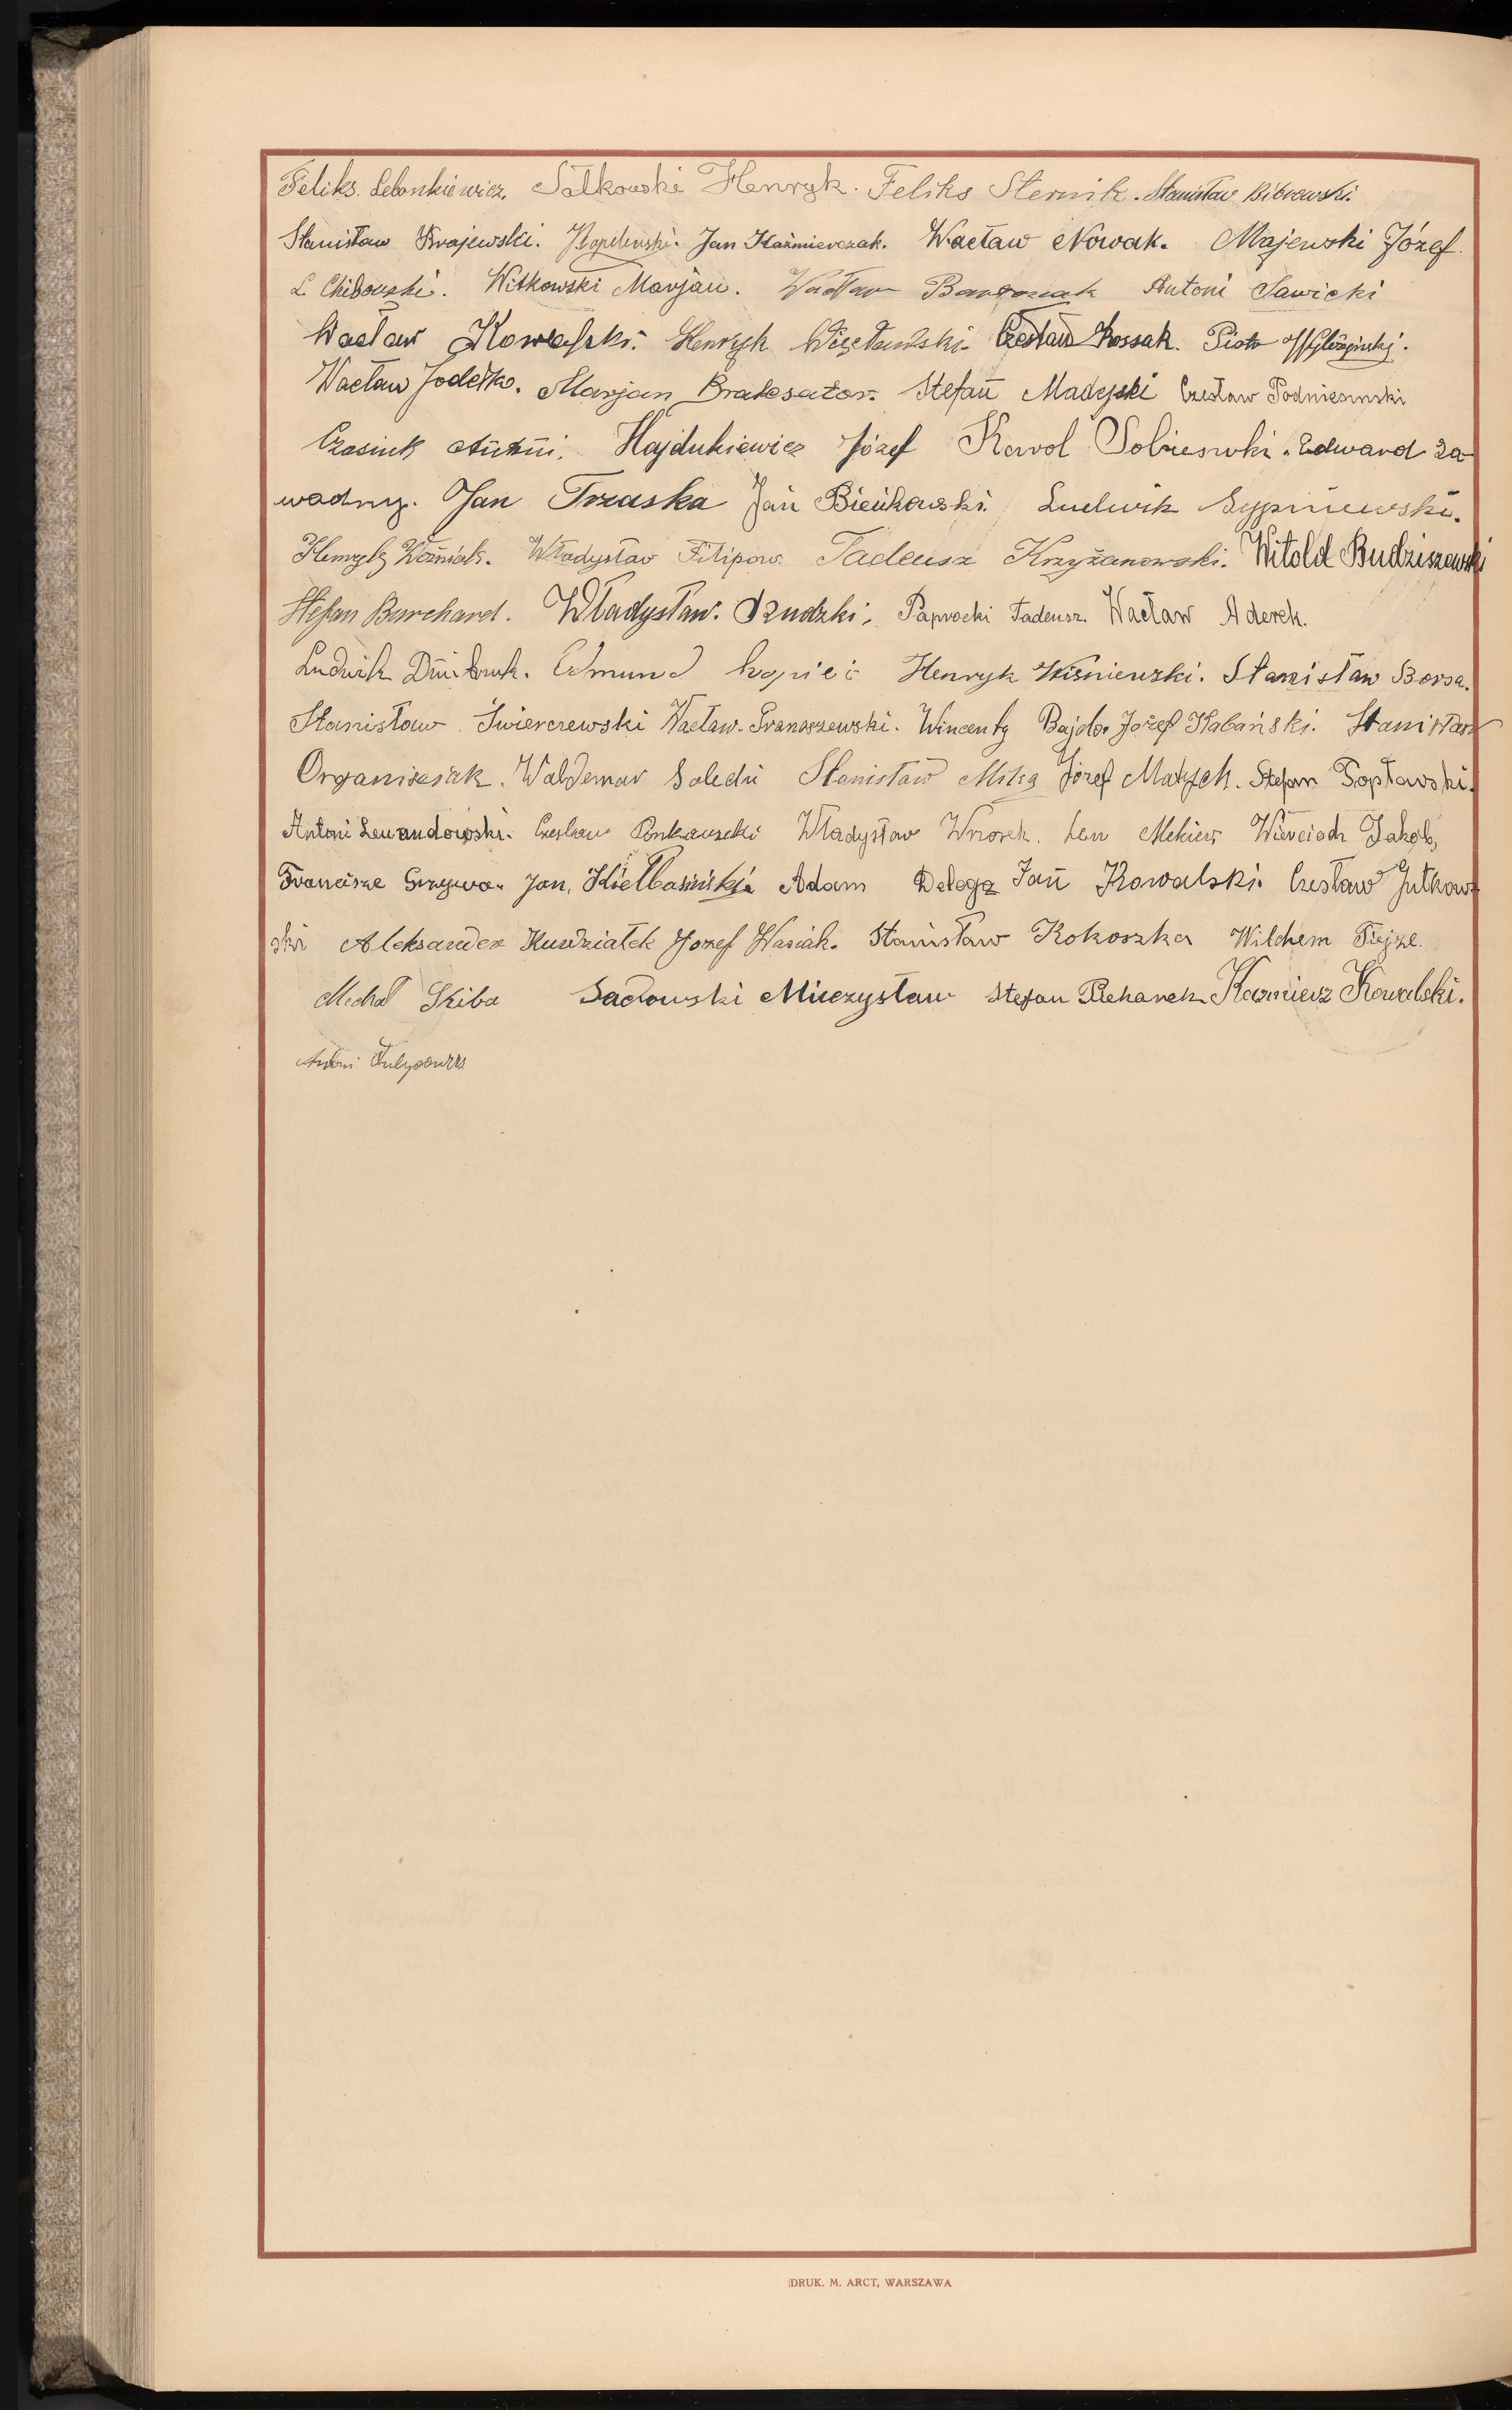 Feliks Lebonkiewicz. Sałkowski Henryk. Feliks Sternik. Stanisław Bibrowski.
Stanisław Krajewski. Jan Kaźmierczak. Wacław Nowak. Majewski Józef.
L. Chibowski. Witkowski Marjan. Wacław Antoni Sawicki
Wacław Kowalski. Henryk Czesław Kossak. Piotr
Wacław Jodełko. Marjan Stefan Madejski Czesław Podniesinski
Antoni. Hajdukiewicz Józef Karol Edward Za-
wadny. Jan Trzaska Jan Bieńkowski. Ludwik Sypniewski.
Henryk Woźniak. Władysław Filipow. Tadeusz Krzyżanowski. Witold Budziszewski
Stefan Burchard. Władysław. Paprocki Tadeusz. Wacław Aderek.
Ludwik Edmund Kopieć Henryk Wiśniewski. Stanisław Borsa.
Stanisław Świerczewski Wacław. Wincenty Bajdo. Józef Kabański. Stanisław
Organisciak. Waldemar Stanisław Mika Józef Matysek. Stefan Popławski.
Antoni Lewandowski. Czesław Władysław Wrzosek. Wiercioch Jakób,
Grzywa. Jan, Kiełbasiński. Adam Delega Jan Kowalski. Czesław Jutkow-
ski Aleksander Kudziałek Józef Wasiak. Stanisław Kokoszka Wilchem
Michał Skiba Sadowski Mieczysław Stefan Kazmierz Kowalski.
Antoni
DRUK. M. ARCT, WARSZAWA